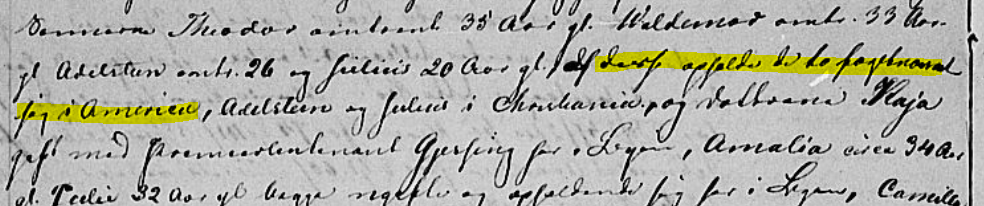 Sønnerne Theodor omtrent 35 Aar gl. Waldemar omtr. 33 Aar
gl Adelsteen omtr. 26 og Julius 20 Aar gl, af disse opholde de to førstnævnte
sig i America, Adelsteen og Julius i Christiania, og Døttrene Kaja
gift med Premierlieutenant Gjersing her i Byen, Amalia circa 34 Aar
gl. 32 Aar gl begge ugifte og opholdende sig her i Byen, Camilla